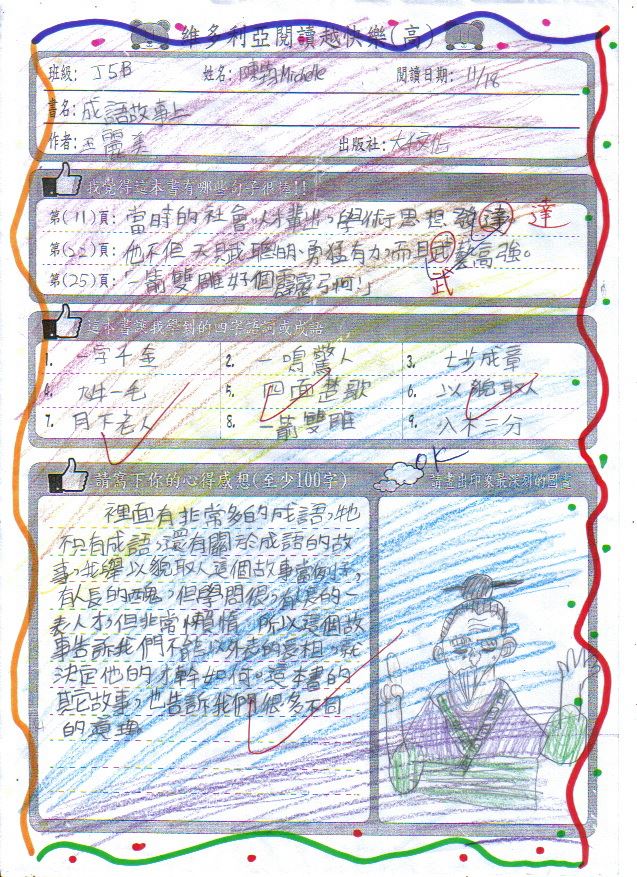 維多利亞閱讀越快樂(高)
班級: J5B 姓名: 陳 Michelle 閱讀日期: 11/18
書名: 成語故事上
作者: 王麗美 出版社:
我覺得這本書有哪些句子很棒!!
第(11)頁: 當時的社會,人才輩出,學術思想發達。達
第(52)頁: 他不但天賦聰明、勇猛有力,而且武藝高強。
武
第(25)頁: 「一箭雙雕好個霹靂弓啊!」
這本書讓我學到的四字語詞或成語
1. 一字千金 2. 一鳴驚人 3. 七步成章
4. 九牛一毛 5. 四面楚歌 6. 以貌取人
7. 月下老人 8. 一箭雙雕 9. 入木三分
OK
請寫下你的心得感想(至少100字) 請畫出印象最深刻的圖畫
裡面有非常多的成語,他
不只有成語,還有關於成語的故
事,我舉以貌取人這個故事當例子,
有人長的醜,但學問很,有人長的一
表人才,但非常懶惰,所以這個故
事告訴我們不能以外表的長相,就
決定他的才幹如何。這本書的
其它故事,也告訴我們很多不同
的道理。